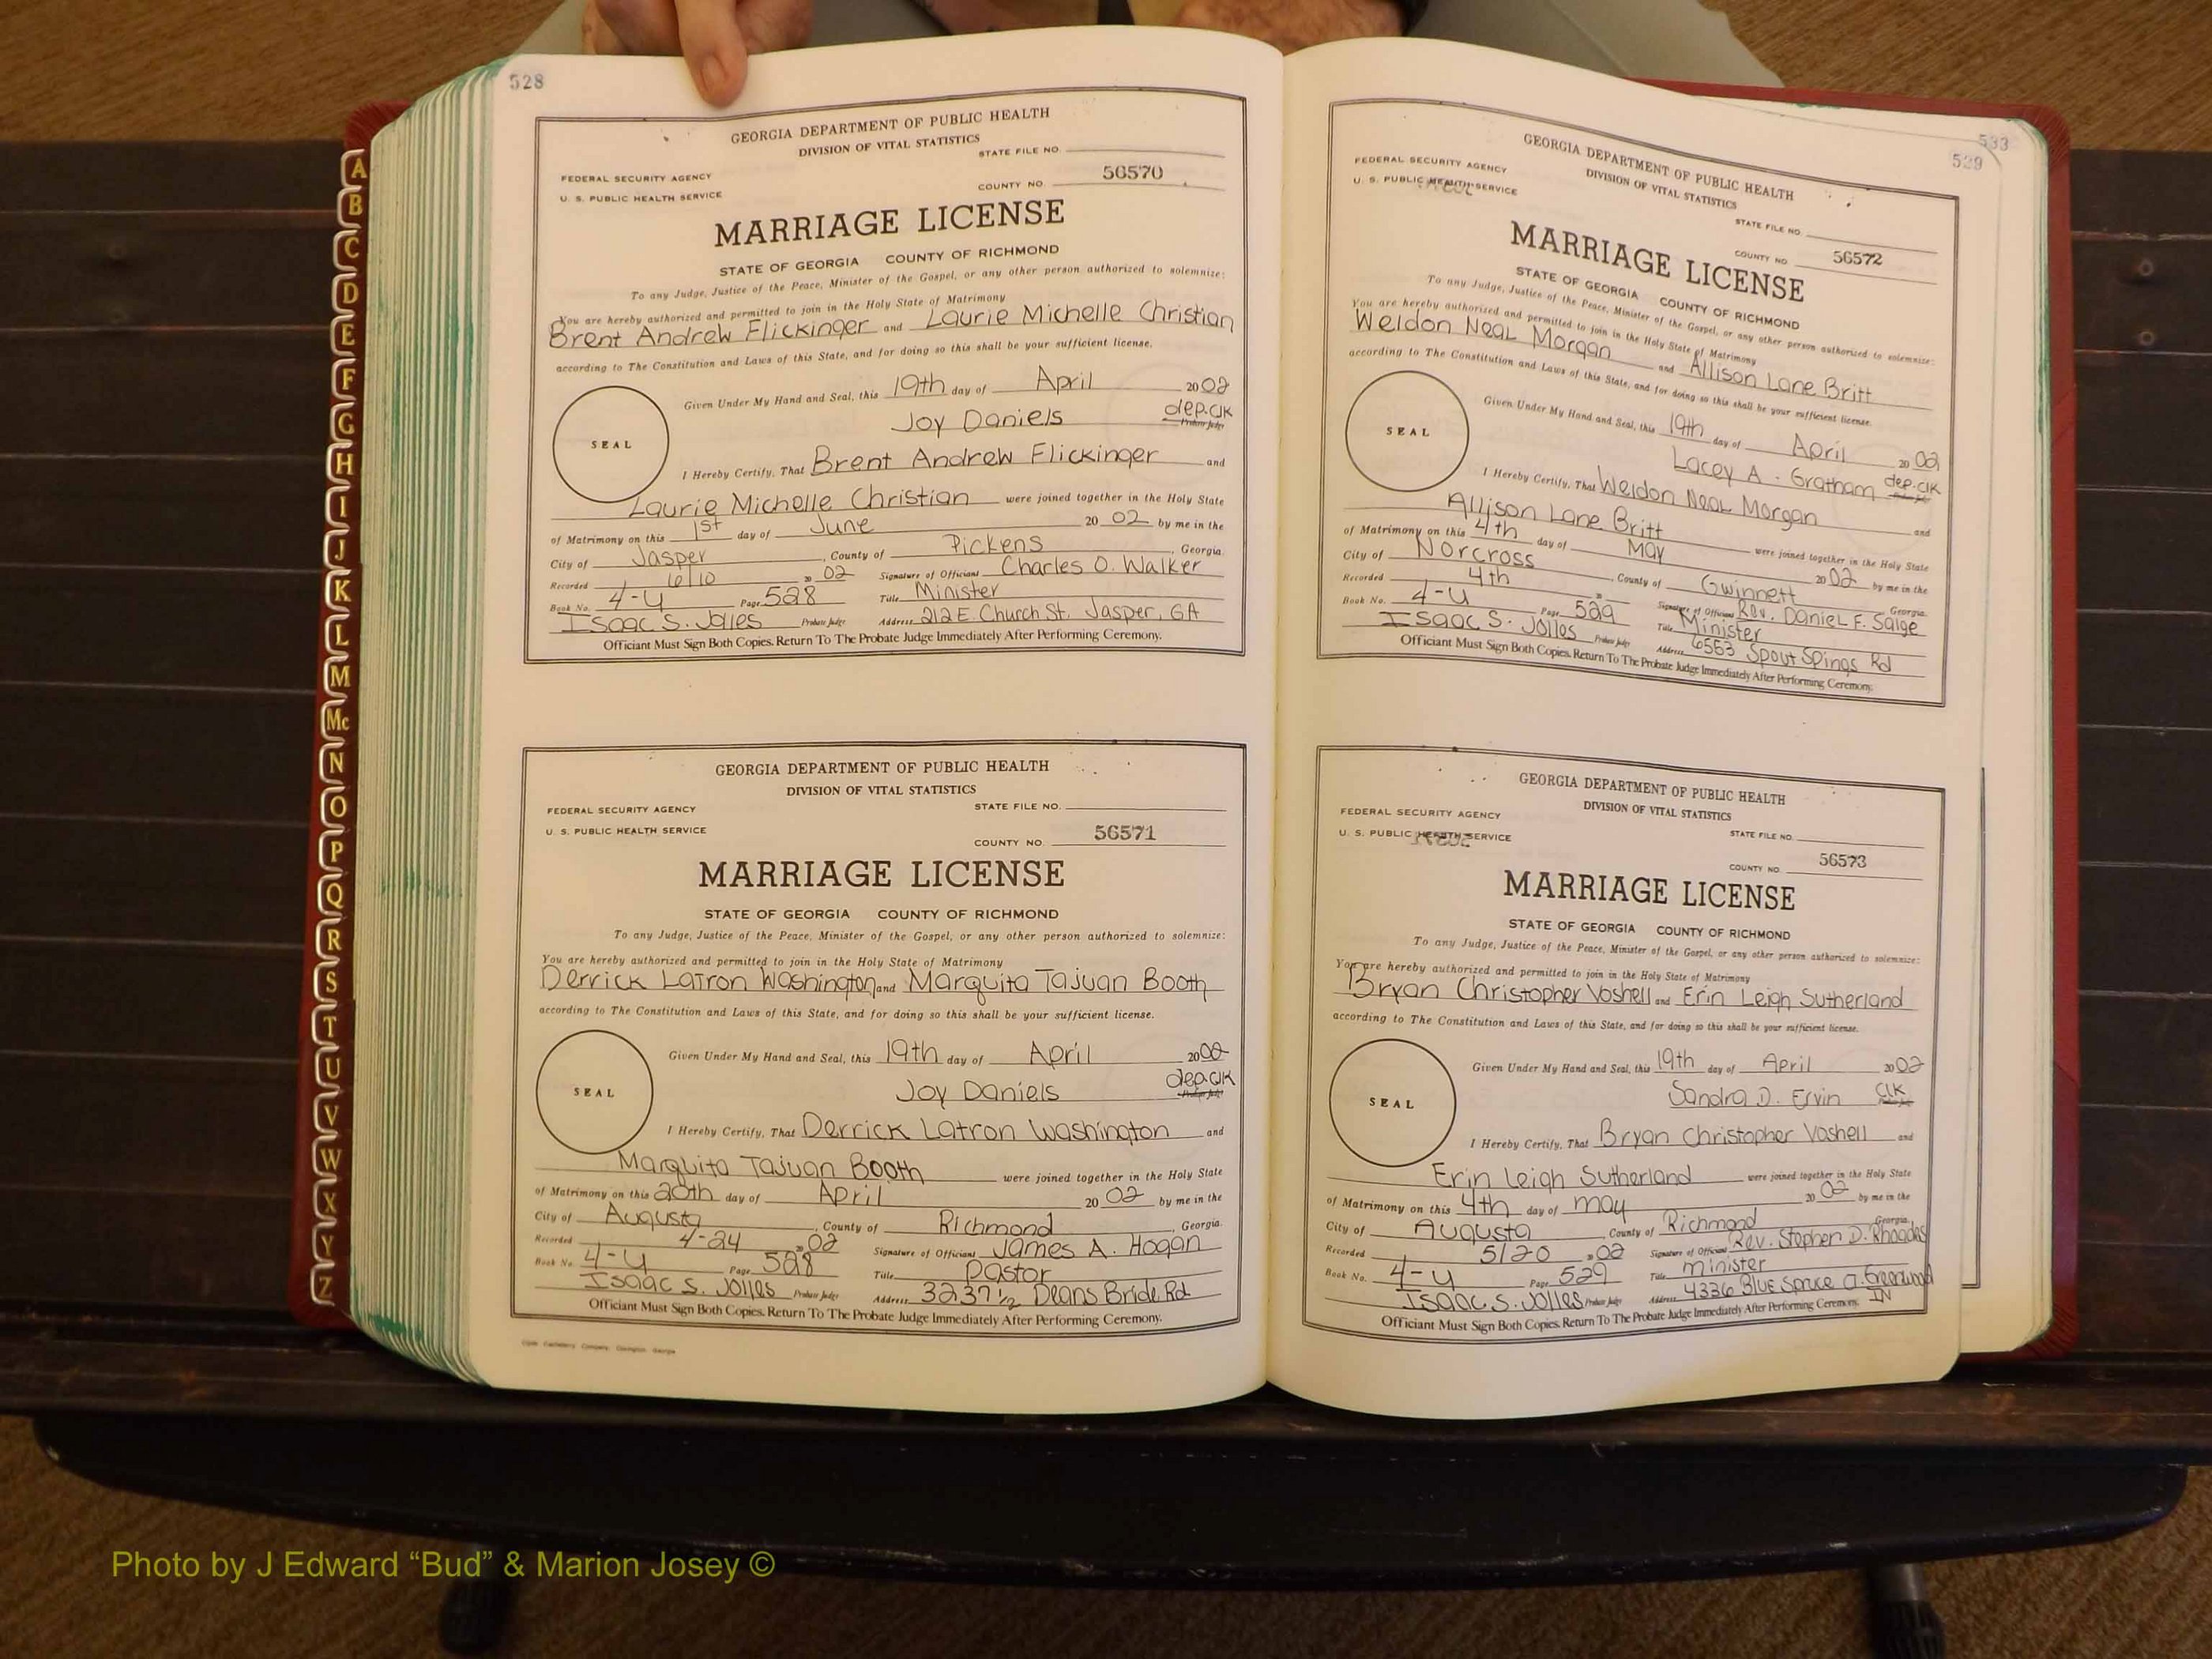 A
B
C
D
E
F
G
H
I
J
K
L
M
Mc
N
O
P
Q
R
S
T
U
V
W
X
Y
Z
528
GEORGIA DEPARTMENT OF PUBLIC HEALTH
DIVISION OF VITAL STATISTICS
STATE FILE NO.
FEDERAL SECURITY AGENCY
U. S. PUBLIC HEALTH SERVICE
COUNTY NO. 56570
MARRIAGE LICENSE
STATE OF GEORGIA COUNTY OF RICHMOND
To any Judge, Justice of the Peace, Minister of the Gospel, or any other person authorized to solemnize:
You are hereby authorized and permitted to join in the Holy State of Matrimony
Brent Andrew Flickinger and Laurie Michelle Christian
according to The Constitution and Laws of this State, and for doing so this shall be your sufficient license.
Given Under My Hand and Seal, this 19th day of April 2002
Joy Daniels dep.clk Probate Judge
SEAL
I Hereby Certify, That Brent Andrew Flickinger and
Laurie Michelle Christian were joined together in the Holy State
of Matrimony on this 1st day of June 20 02 by me in the
City of Jasper, County of Pickens, Georgia.
Recorded 6/10 20 02 Signature of Officiant Charles O. Walker
Book No. 4-U Page 528 Title Minister
Isaac S. Jolles Probate Judge Address 212 E. Church St. Jasper, GA
Officiant Must Sign Both Copies. Return To The Probate Judge Immediately After Performing Ceremony.
GEORGIA DEPARTMENT OF PUBLIC HEALTH
DIVISION OF VITAL STATISTICS
FEDERAL SECURITY AGENCY STATE FILE NO.
U. S. PUBLIC HEALTH SERVICE
COUNTY NO. 56571
MARRIAGE LICENSE
STATE OF GEORGIA COUNTY OF RICHMOND
To any Judge, Justice of the Peace, Minister of the Gospel, or any other person authorized to solemnize:
You are hereby authorized and permitted to join in the Holy State of Matrimony
Derrick LaTron Washington and Marquita Tajuan Booth
according to The Constitution and Laws of this State, and for doing so this shall be your sufficient license.
Given Under My Hand and Seal, this 19th day of April 2002
Joy Daniels dep.clk Probate Judge
SEAL
I Hereby Certify, That Derrick Latron Washington and
Marquita Tajuan Booth were joined together in the Holy State
of Matrimony on this 20th day of April 20 02 by me in the
City of Augusta, County of Richmond, Georgia.
Recorded 4-24 20 02 Signature of Officiant James A. Hogan
Book No. 4-U Page 528 Title Pastor
Isaac S. Jolles Probate Judge Address 3237 1/2 Deans Bride Rd
Officiant Must Sign Both Copies. Return To The Probate Judge Immediately After Performing Ceremony.
533
529
GEORGIA DEPARTMENT OF PUBLIC HEALTH
DIVISION OF VITAL STATISTICS
FEDERAL SECURITY AGENCY
U. S. PUBLIC HEALTH SERVICE
STATE FILE NO.
COUNTY NO. 56572
MARRIAGE LICENSE
STATE OF GEORGIA COUNTY OF RICHMOND
To any Judge, Justice of the Peace, Minister of the Gospel, or any other person authorized to solemnize:
You are hereby authorized and permitted to join in the Holy State of Matrimony
Weldon Neal Morgan and Allison Lane Britt
according to The Constitution and Laws of this State, and for doing so this shall be your sufficient license.
Given Under My Hand and Seal, this 19th day of April 20 02
Lacey A. Gratham dep.clk
SEAL
I Hereby Certify, That Weldon Neal Morgan and
Allison Lane Britt were joined together in the Holy State
of Matrimony on this 4th day of May 20 02 by me in the
City of Norcross County of Gwinnett, Georgia.
Recorded 4th 20 Signature of Officiant Rev. Daniel F. Saige
Book No. 4-U Page 529 Title Minister
Isaac S. Jolles Probate Judge Address 6553 Spout Spings Rd
Officiant Must Sign Both Copies. Return To The Probate Judge Immediately After Performing Ceremony.
GEORGIA DEPARTMENT OF PUBLIC HEALTH
DIVISION OF VITAL STATISTICS
FEDERAL SECURITY AGENCY
U. S. PUBLIC HEALTH SERVICE
STATE FILE NO.
COUNTY NO. 56573
MARRIAGE LICENSE
STATE OF GEORGIA COUNTY OF RICHMOND
To any Judge, Justice of the Peace, Minister of the Gospel, or any other person authorized to solemnize:
You are hereby authorized and permitted to join in the Holy State of Matrimony
Bryan Christopher Voshell and Erin Leigh Sutherland
according to The Constitution and Laws of this State, and for doing so this shall be your sufficient license.
Given Under My Hand and Seal, this 19th day of April 2002
Sandra D. Ervin Clk
SEAL
I Hereby Certify, That Bryan Christopher Voshell and
Erin Leigh Sutherland were joined together in the Holy State
of Matrimony on this 4th day of may 20 02 by me in the
City of Augusta County of Richmond Georgia.
Recorded 5/20 20 02 Signature of Officiant Rev. Stephen D. Rhoades
Book No. 4-U Page 529 Title minister
Isaac S. Jolles Probate Judge Address 4336 Blue Spruce Ct. Greenwood IN
Officiant Must Sign Both Copies. Return To The Probate Judge Immediately After Performing Ceremony.
Photo by J Edward “Bud” & Marion Josey ©